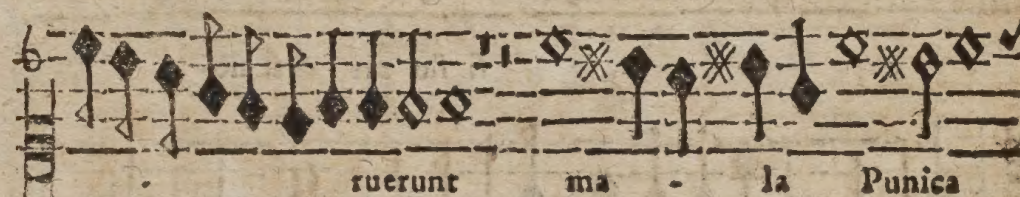 - ruerunt ma - la Punica